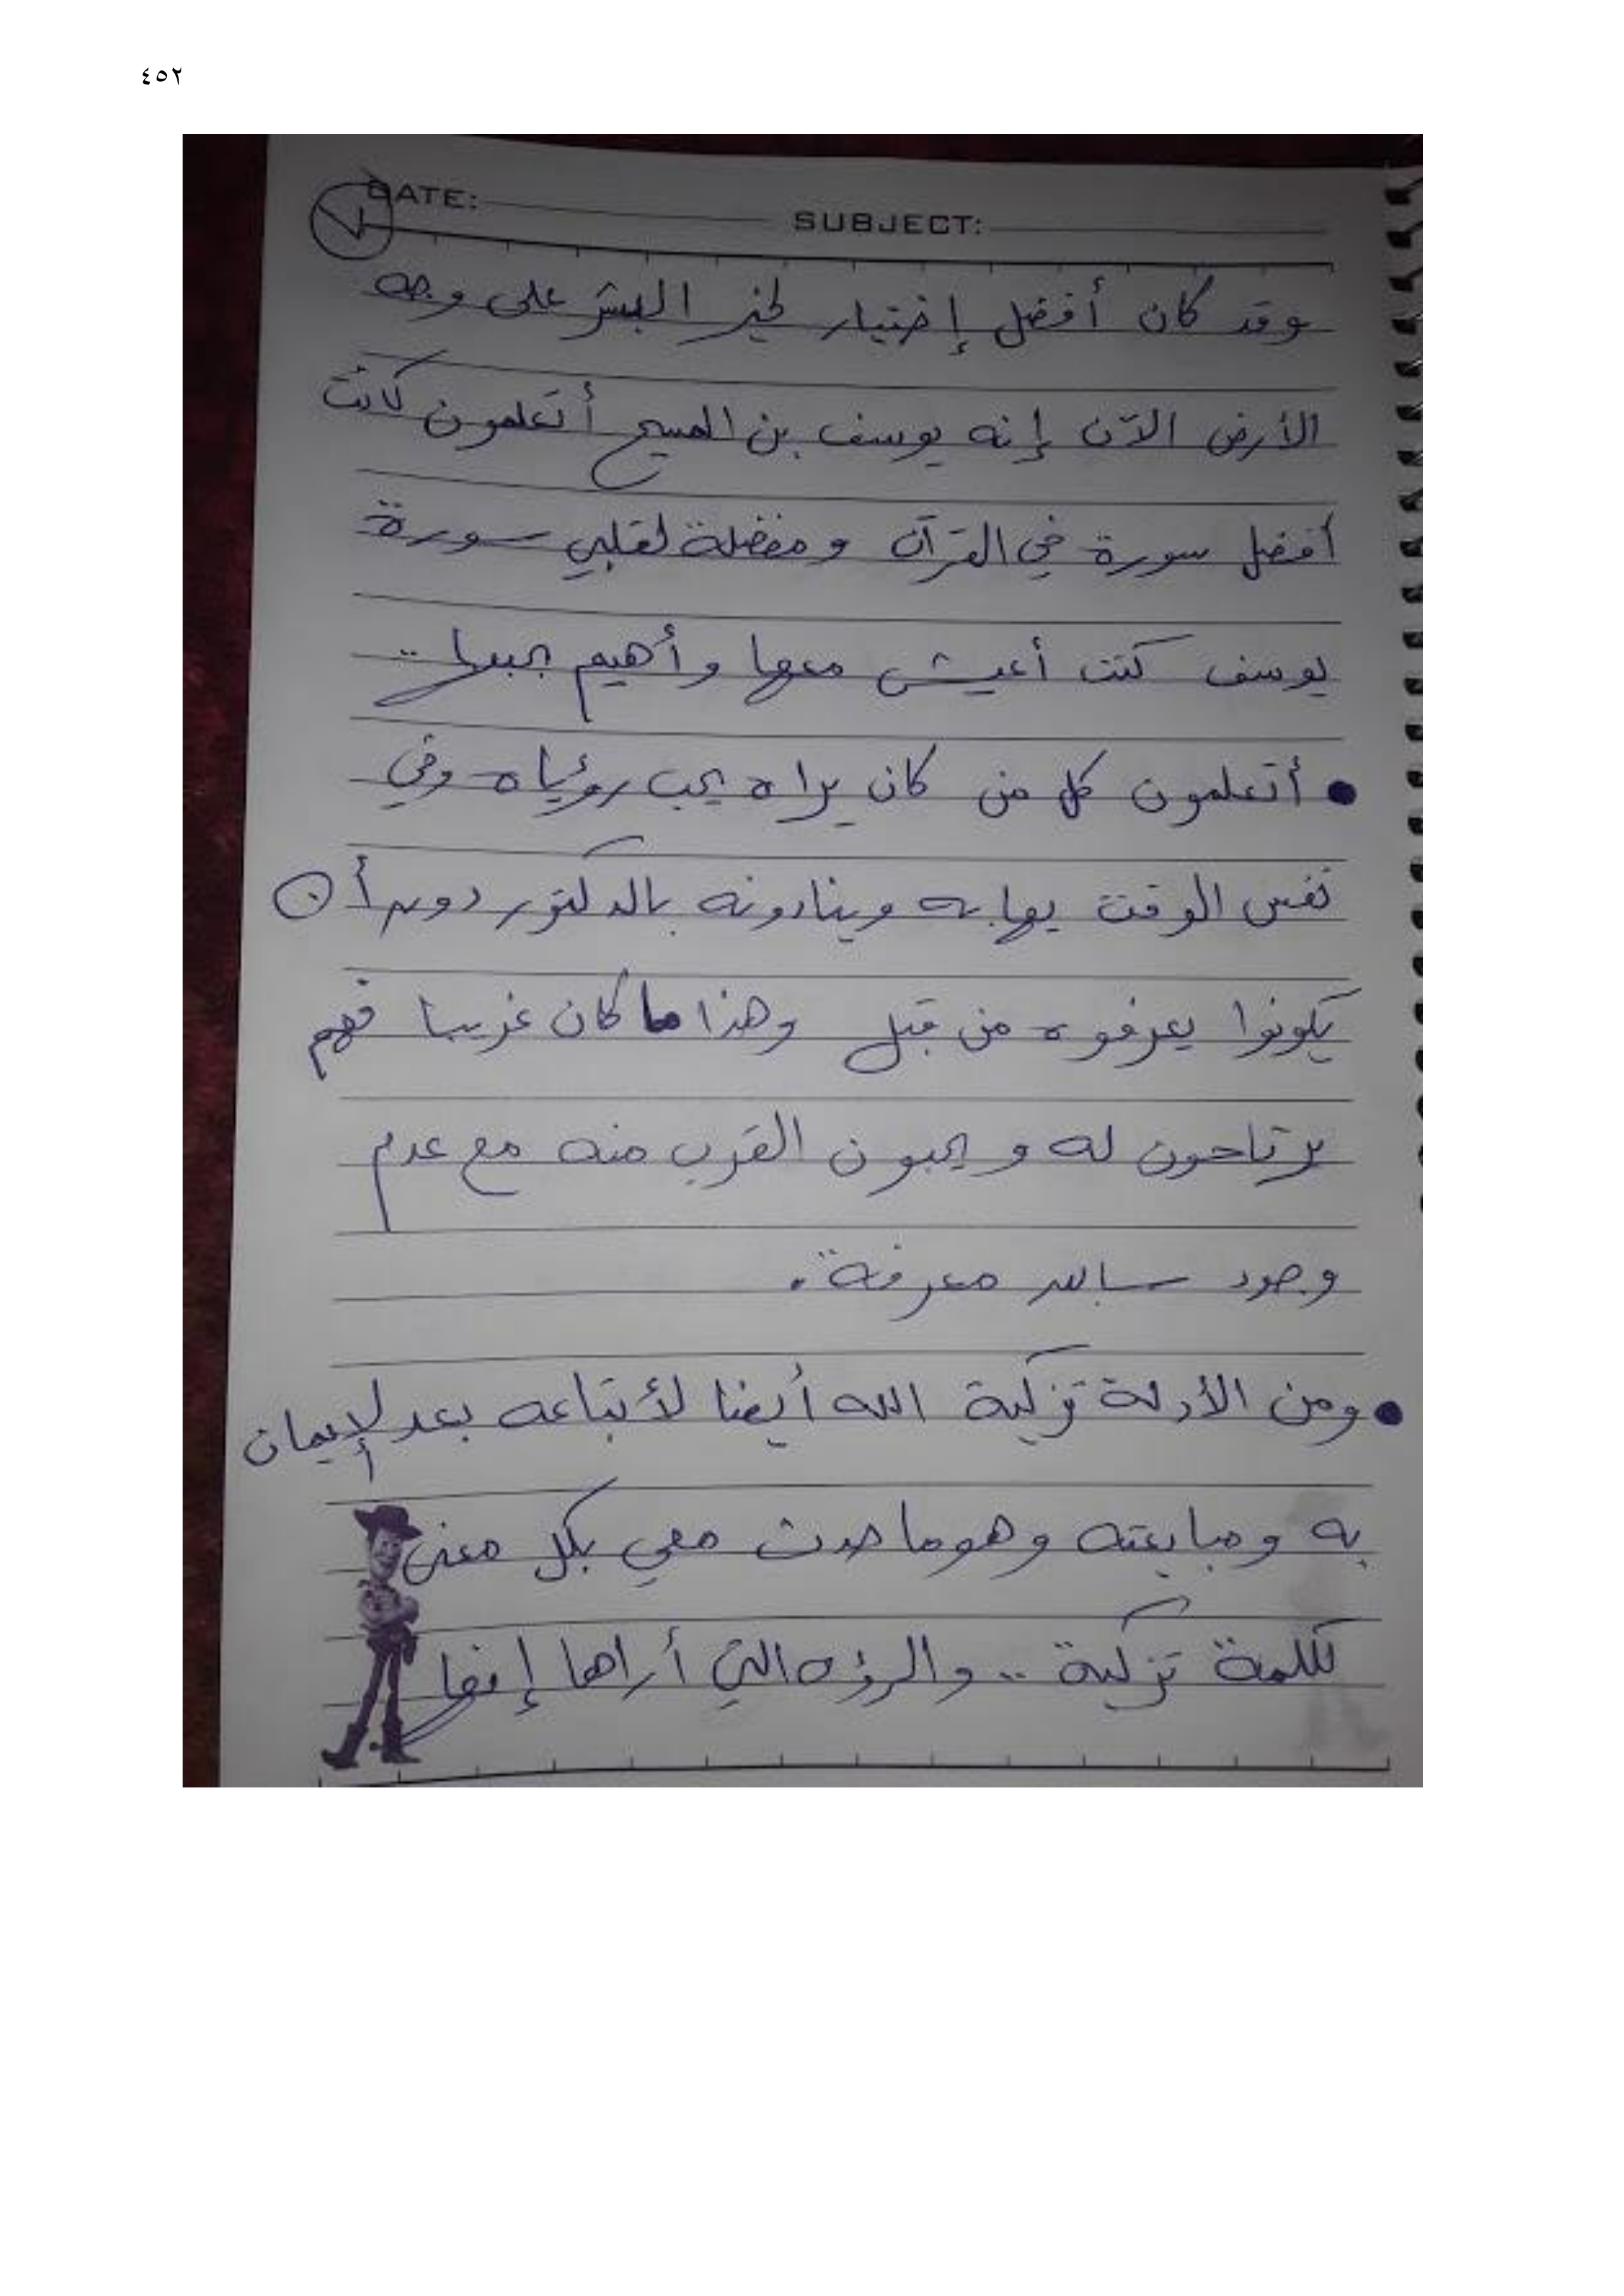 ٤٥٢
DATE: SUBJECT:
٧
وقد كان أفضل إختيار لخير البشر على وجه
الأرض الآن إنه يوسف بن المسيح أتعلمون كانت
أفضل سورة في القرآن ومفضلة لقلبي سورة
يوسف كنت أعيش معها وأهيم بحبها ..
• أتعلمون كل من كان يراه يحب رؤياه وفي
نفس الوقت يهابه وينادونه بالدكتور دون أن
يكونوا يعرفوه من قبل وهذا ما كان غريبا فهم
يرتاحون له ويحبون القرب منه مع عدم
وجود سابق معرفة .
• ومن الأدلة تزكية الله أيضا لأتباعه بعد الإيمان
به ومبايعته وهو ما حدث معي بكل معنى
لكلمة تزكية .. والرؤه التي أراها إنها